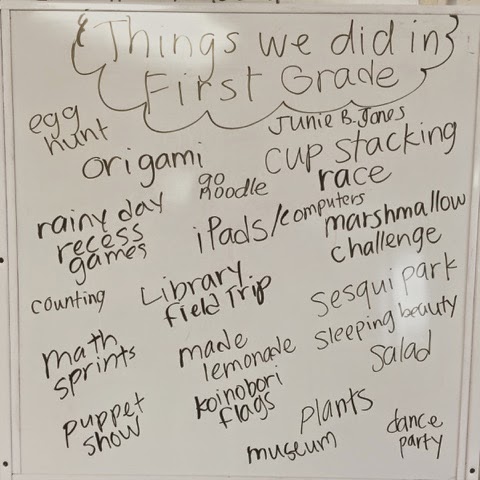 Things we did in
First Grade
egg
hunt
Junie B. Jones
origami
cup stacking
race
go
noodle
rainy day
recess
games
iPads/computers
marshmallow
challenge
counting
Library
field Trip
Sesqui park
Sleeping beauty
math
sprints
made
lemonade
salad
koinobori
flags
puppet
show
plants
museum
dance
party